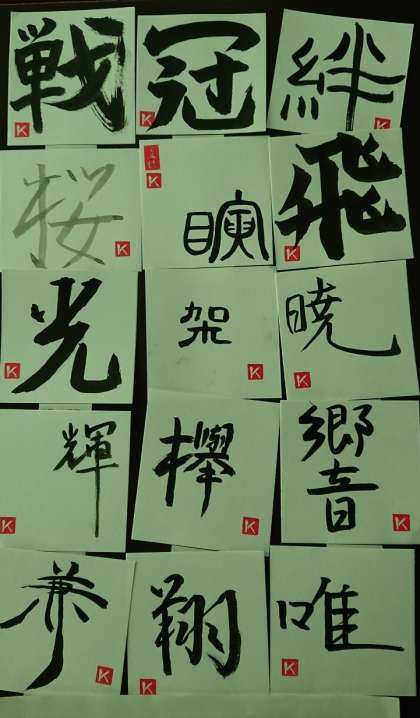 戦 冠 絆
K K K
桜 飛
K K K
光 架 暁
K K K
輝 欅 響
K K K
兼 翔 唯
K K K